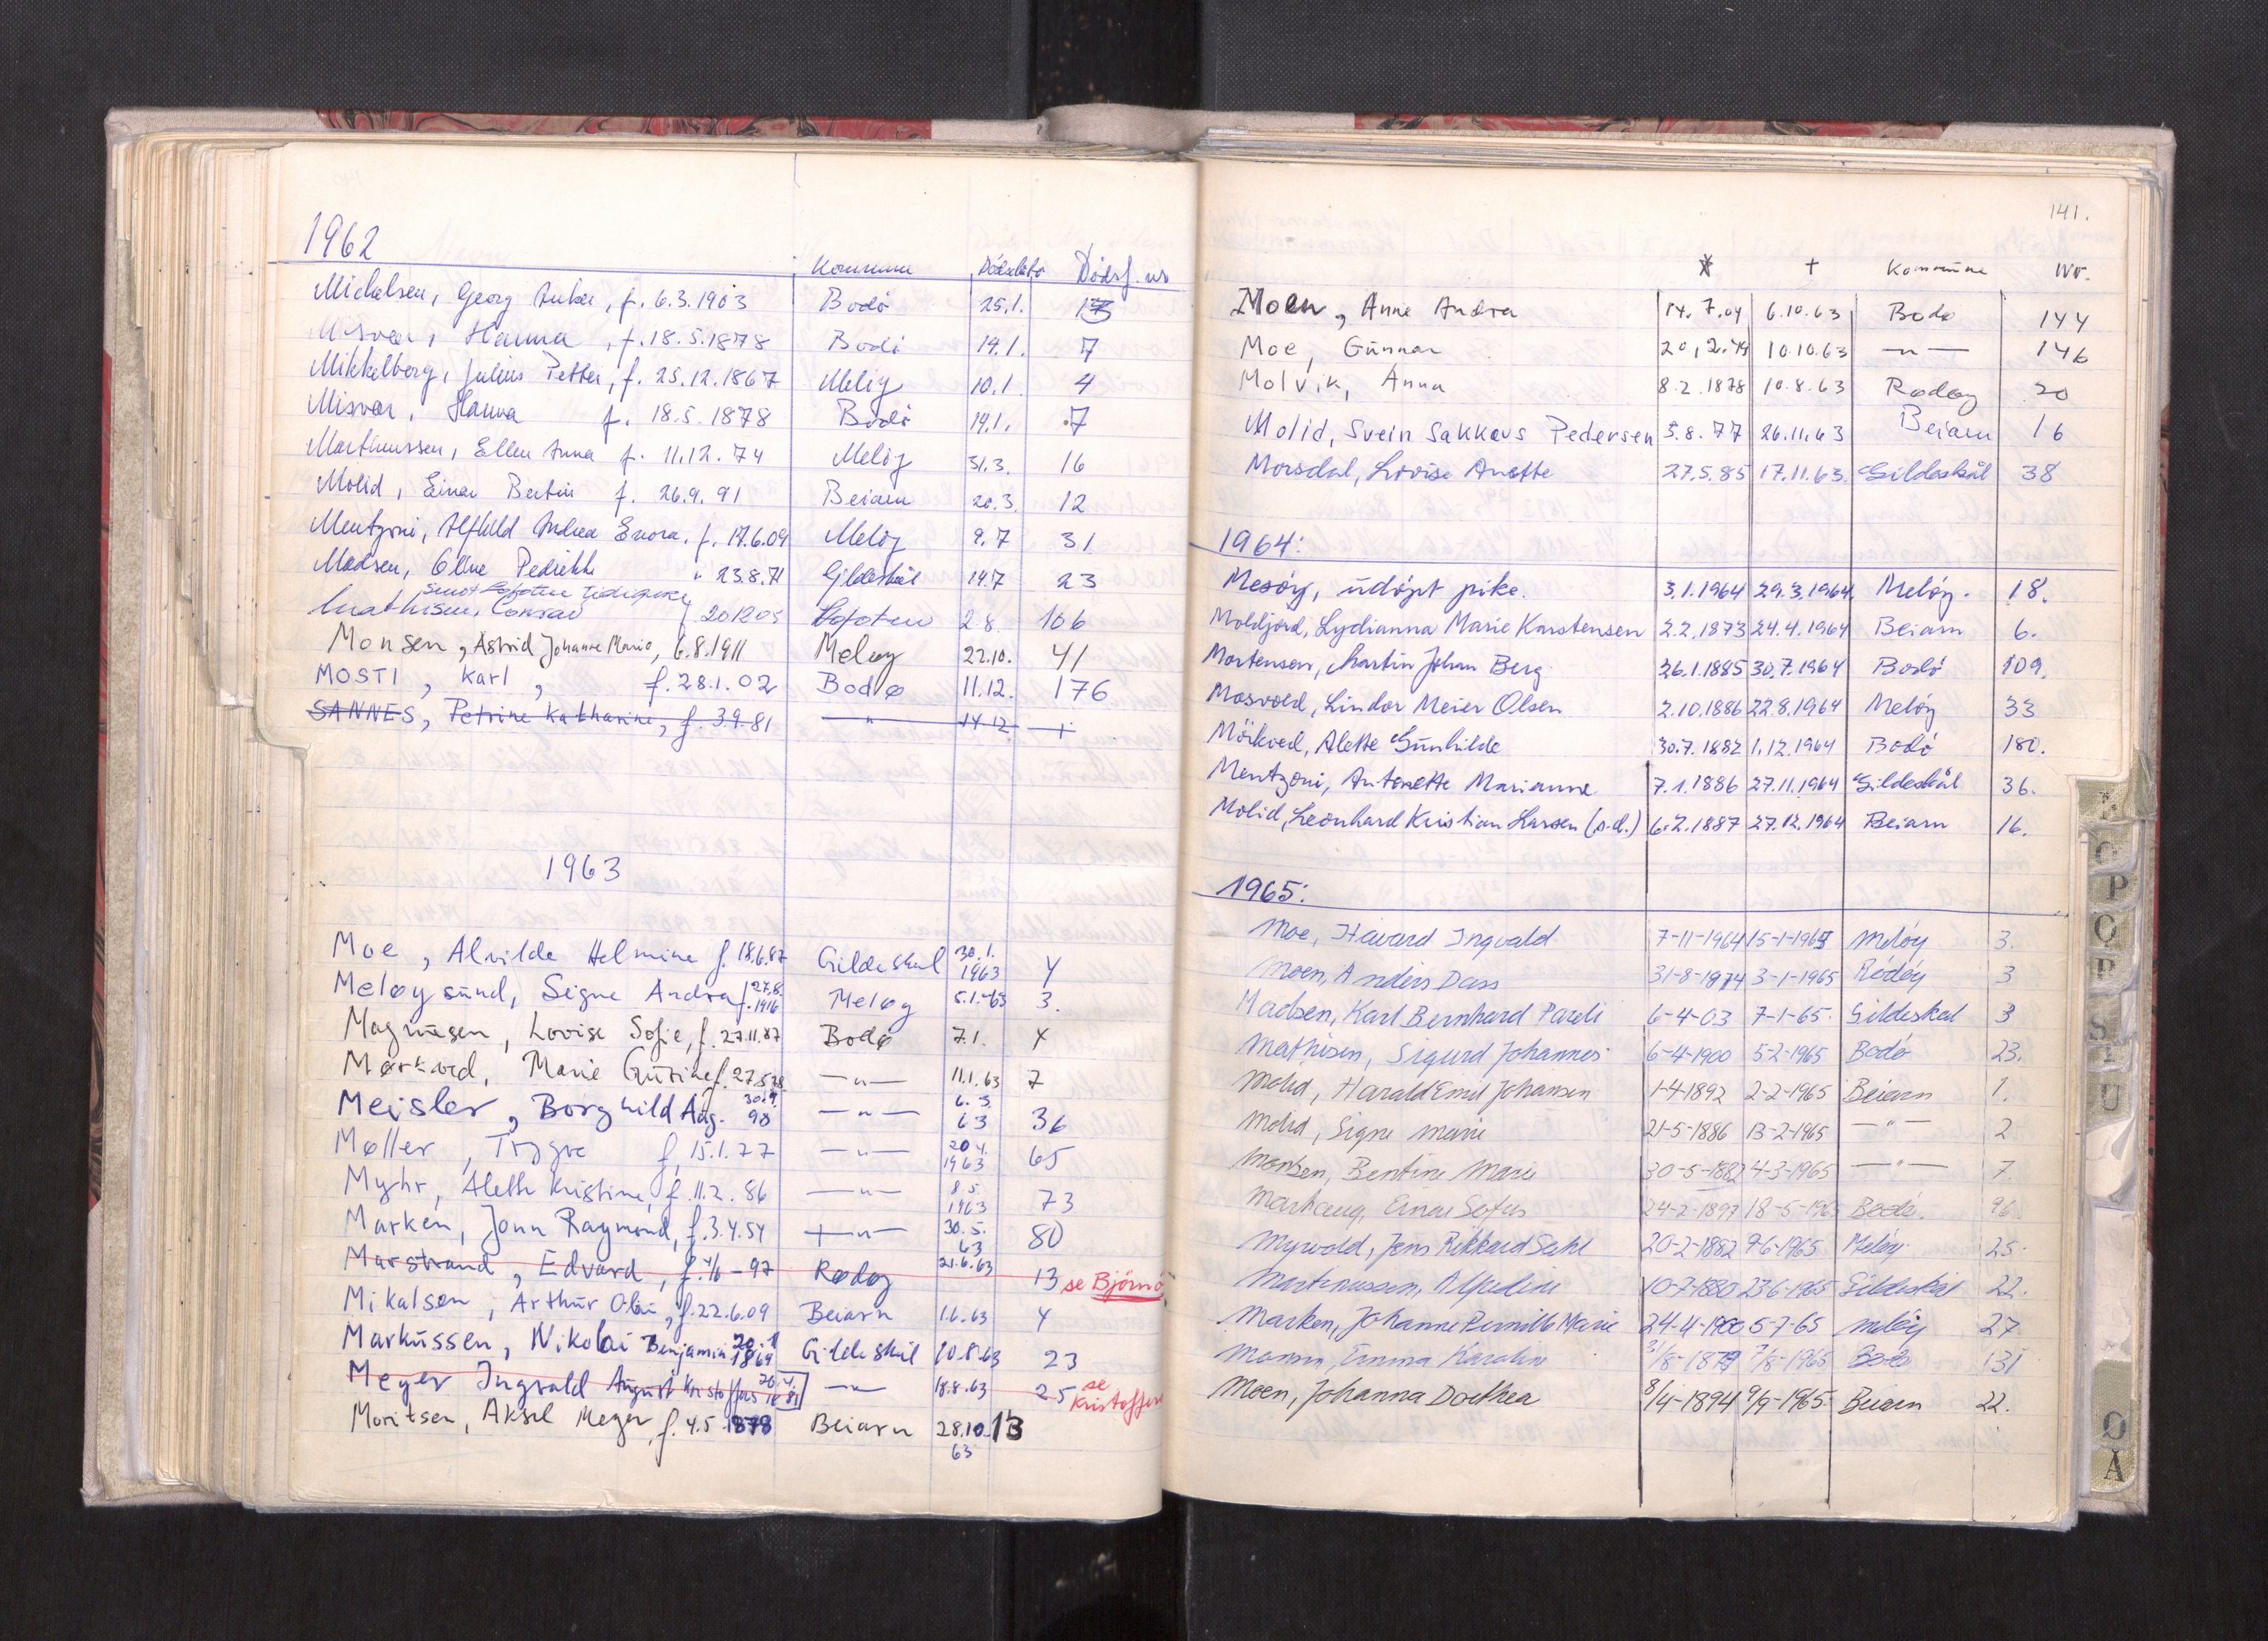 1962
Kommune Dödsdato Dödsf. nr
Michelsen, Georg Anker, f. 6.3.1903 Bodö 25.1. 13
Misvær, Hanna, f. 18.5.1878 Bodö 14.1. 7
Mikkelberg, Julius Petter, f. 25.12.1867 Melöy 10.1 4
Misvær, Hanna f. 18.5.1878 Bodö 14.1. 7
Marthinussen, Ellen Anna f. 11.12.74 Melöy 31.3. 16
Molid, Einar Bertin f. 26.9.91 Beiarn 20.3. 12
Mentzoni, Alfhild Andrea Enora. f. 17.6.09 Melöy 9.7 31
Madsen, Oline Pedrikke " 23.8.71 Gildeskål 14.7 23
Mathisen, Conrad f 201205 Lofoten 2 8 106
Monsen, Astrid Johanne Marie, 6.8.1911 Meløy 22.10. 41
MOSTI, Karl, f. 28.1.02 Bodø 11.12. 176
SANNES, Petrine Katharine, f. 3.9.81 — " — 14.12 +
1963
Moe, Alvilde Helmine f. 18.6.87 Gildeskål 30.1. 1963 4
Meløysund, Signe Andrea f. 27.8. 1916 Meløy 5.1.-63 3.
Magnusen, Lovise Sofie, f. 27.11.87 Bodø 7.1. 4
Mørkved, Marie Gurine f. 27.5.78 — " — 11.1.63 7
Meisler, Borghild Aag. 30.9. 98 — " — 6.3. 63 36
Møller, Trygve f. 15.1.77 — " — 20 4. 1963 65
Myhr, Aleth Kristine, f. 11.2.86 — " — 8.5. 1963 73
Marken, Jonn Raymond, f. 3.4.54 — " — 30.5. 63 80
Marstrand, Edvard, f. 4/6-97 Rødøy 21.6.63 13 se Björnö
Mikalsen, Arthur Olai, f. 22.6.09 Beiarn 1.6.63 4
Markussen, Nikolai Benjamin 20.1 1869 Gildeskål 10.8.63 23
Meyer Ingvald August Kristoffers 26.4. 1881 — " — 18.8.63 25 se Kristoffers
Moritsen, Aksel Meyer f. 4.5 1878 Beiarn 28.10. 63 13
141.
* † Kommune Nr.
Moen, Anne Andrea 14.7.04 6.10.63 Bodø 144
Moe, Gunnar 20.2.49 10.10.63 — " — 146
Molvik, Anna 8.2.1878 10.8.63 Rødøy 20
Molid, Svein Sakkæus Pedersen 5.8.77 26.11.63 Beiarn 16
Morsdal, Lovise Anette 27.5.85 17.11.63. Gildeskål 38
1964:
Mesöy, udöpt pike. 3.1.1964 29.3.1964. Melöy. 18.
Moldjord, Lydianna Marie Karstensen 2.2.1873 24.4.1964 Beiarn 6.
Mortensen, Martin Johan Berg. 26.1.1885 30.7.1964 Bodö 109.
Mosvold, Lindor Meier Olsen 2.10.1886 22.8.1964 Melöy 33
Mörkved, Alette Gunhilde 30.7.1882 1.12.1964 Bodö 180.
Mentzoni, Antonette Marianne 7.1.1886 27.11.1964 Gildeskål 36.
Molid, Leonhard Kristian Larsen (s.d.) 6.2.1887 27.12.1964 Beiarn 16.
1965:
Moe, Håvard Ingvald 7-11-1964 15-1-1965 Melöy 3.
Moen, Anders Dass 31-8-1874 3-1-1965 Rödöy 3
Madsen, Karl Bernhard Pareli 6-4-03 7-1-65. Gildeskål 3
Mathisen, Sigurd Johannes 6-4-1900 5-2-1965 Bodö 23.
Molid, Harald Emil Johansen 1-4-1892 2-2-1965 Beiarn 1.
Molid, Signe Marie 21-5-1886 13-2-1965 — " — 2
Monsen, Bentine Marie 30-5-1882 4-3-1965 — " — 7.
Marhaug, Einar Sofus 24-2-1897 18-5-1965 Bodö. 96.
Myrvold, Jens Rikkard 20-2-1882 9-6-1965 Melöy 25.
Martinussen, Alfredine 10-7-1880 23-6-1965 Gildeskål 22.
Marken, Johanne Pernille Marie 24-4-1900 5-7-65 Melöy 27
Emma Karoline 31/8-1879 7/8-1965 Bodö 131
Moen, Johanna Dorthea 8/4-1894 9/9-1965. Beiarn 22.
O
P
Q
R
S
T
U
Ø
Å